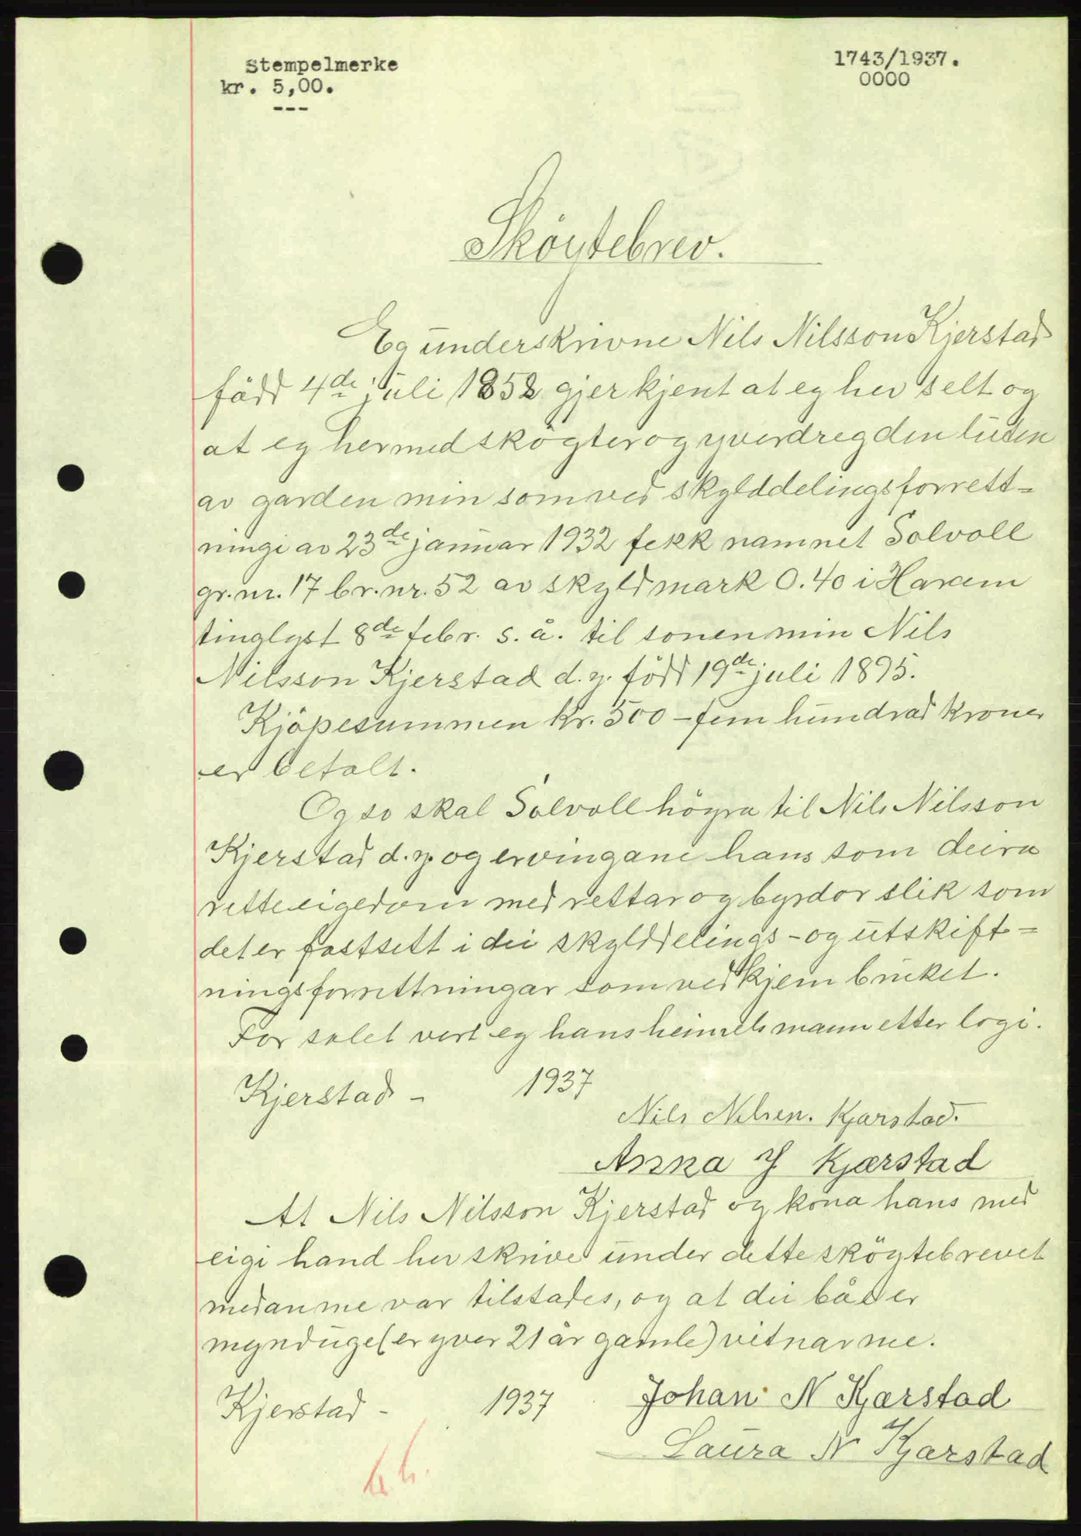 Stempelmerke
kr. 5,00.
---
1743/1937.
0000
Sköytebrev.
Eg underskrivne Nils Nilsson Kjerstad
född 4de juli 1852 gjer kjent at eg hev selt og
at eg hermed sköyter og yverdreg den luten
av garden min som ved skylddelingsforrett=
ningi av 23de januar 1932 fekk namnet Solvoll
gr.nr. 17 br.nr. 52 av skyldmark 0.40 i Haram
tinglyst 8de febr. s. å. til sonen min Nils
Nilsson Kjerstad d.y. född 19de juli 1895.
Kjöpesummen kr. 500 - fem hundrad kroner
er betalt.
Og so skal Solvoll höyra til Nils Nilsson
Kjerstad d.y. og ervingane hans som deira
rette eigedom med rettar og byrdor slik som
det er fastsett i dei skylddelings- og utskift=
ningsforrettningar som vedkjem bruket.
For salet vert eg hans heimelsmann etter logi.
Kjerstad - 1937
Nils Nilsen. Kjærstad.
Anna J Kjærstad
At Nils Nilsson Kjerstad og kona hans med
eigi hand hev skrive under dette sköytebrevet
medan me var tilstades, og at dei båe er
mynduge (er yver 21 år gamle) vitnar me.
Kjerstad - 1937
Johan N Kjærstad
Laura N Kjærstad